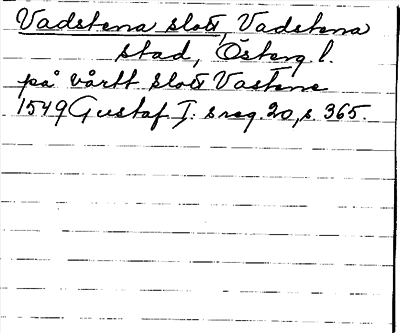 Vadstena slott, Vadstena
stad, Österg l.
på vårtt slott Vastene
1549 Gustaf I:s reg. 20, s. 365.